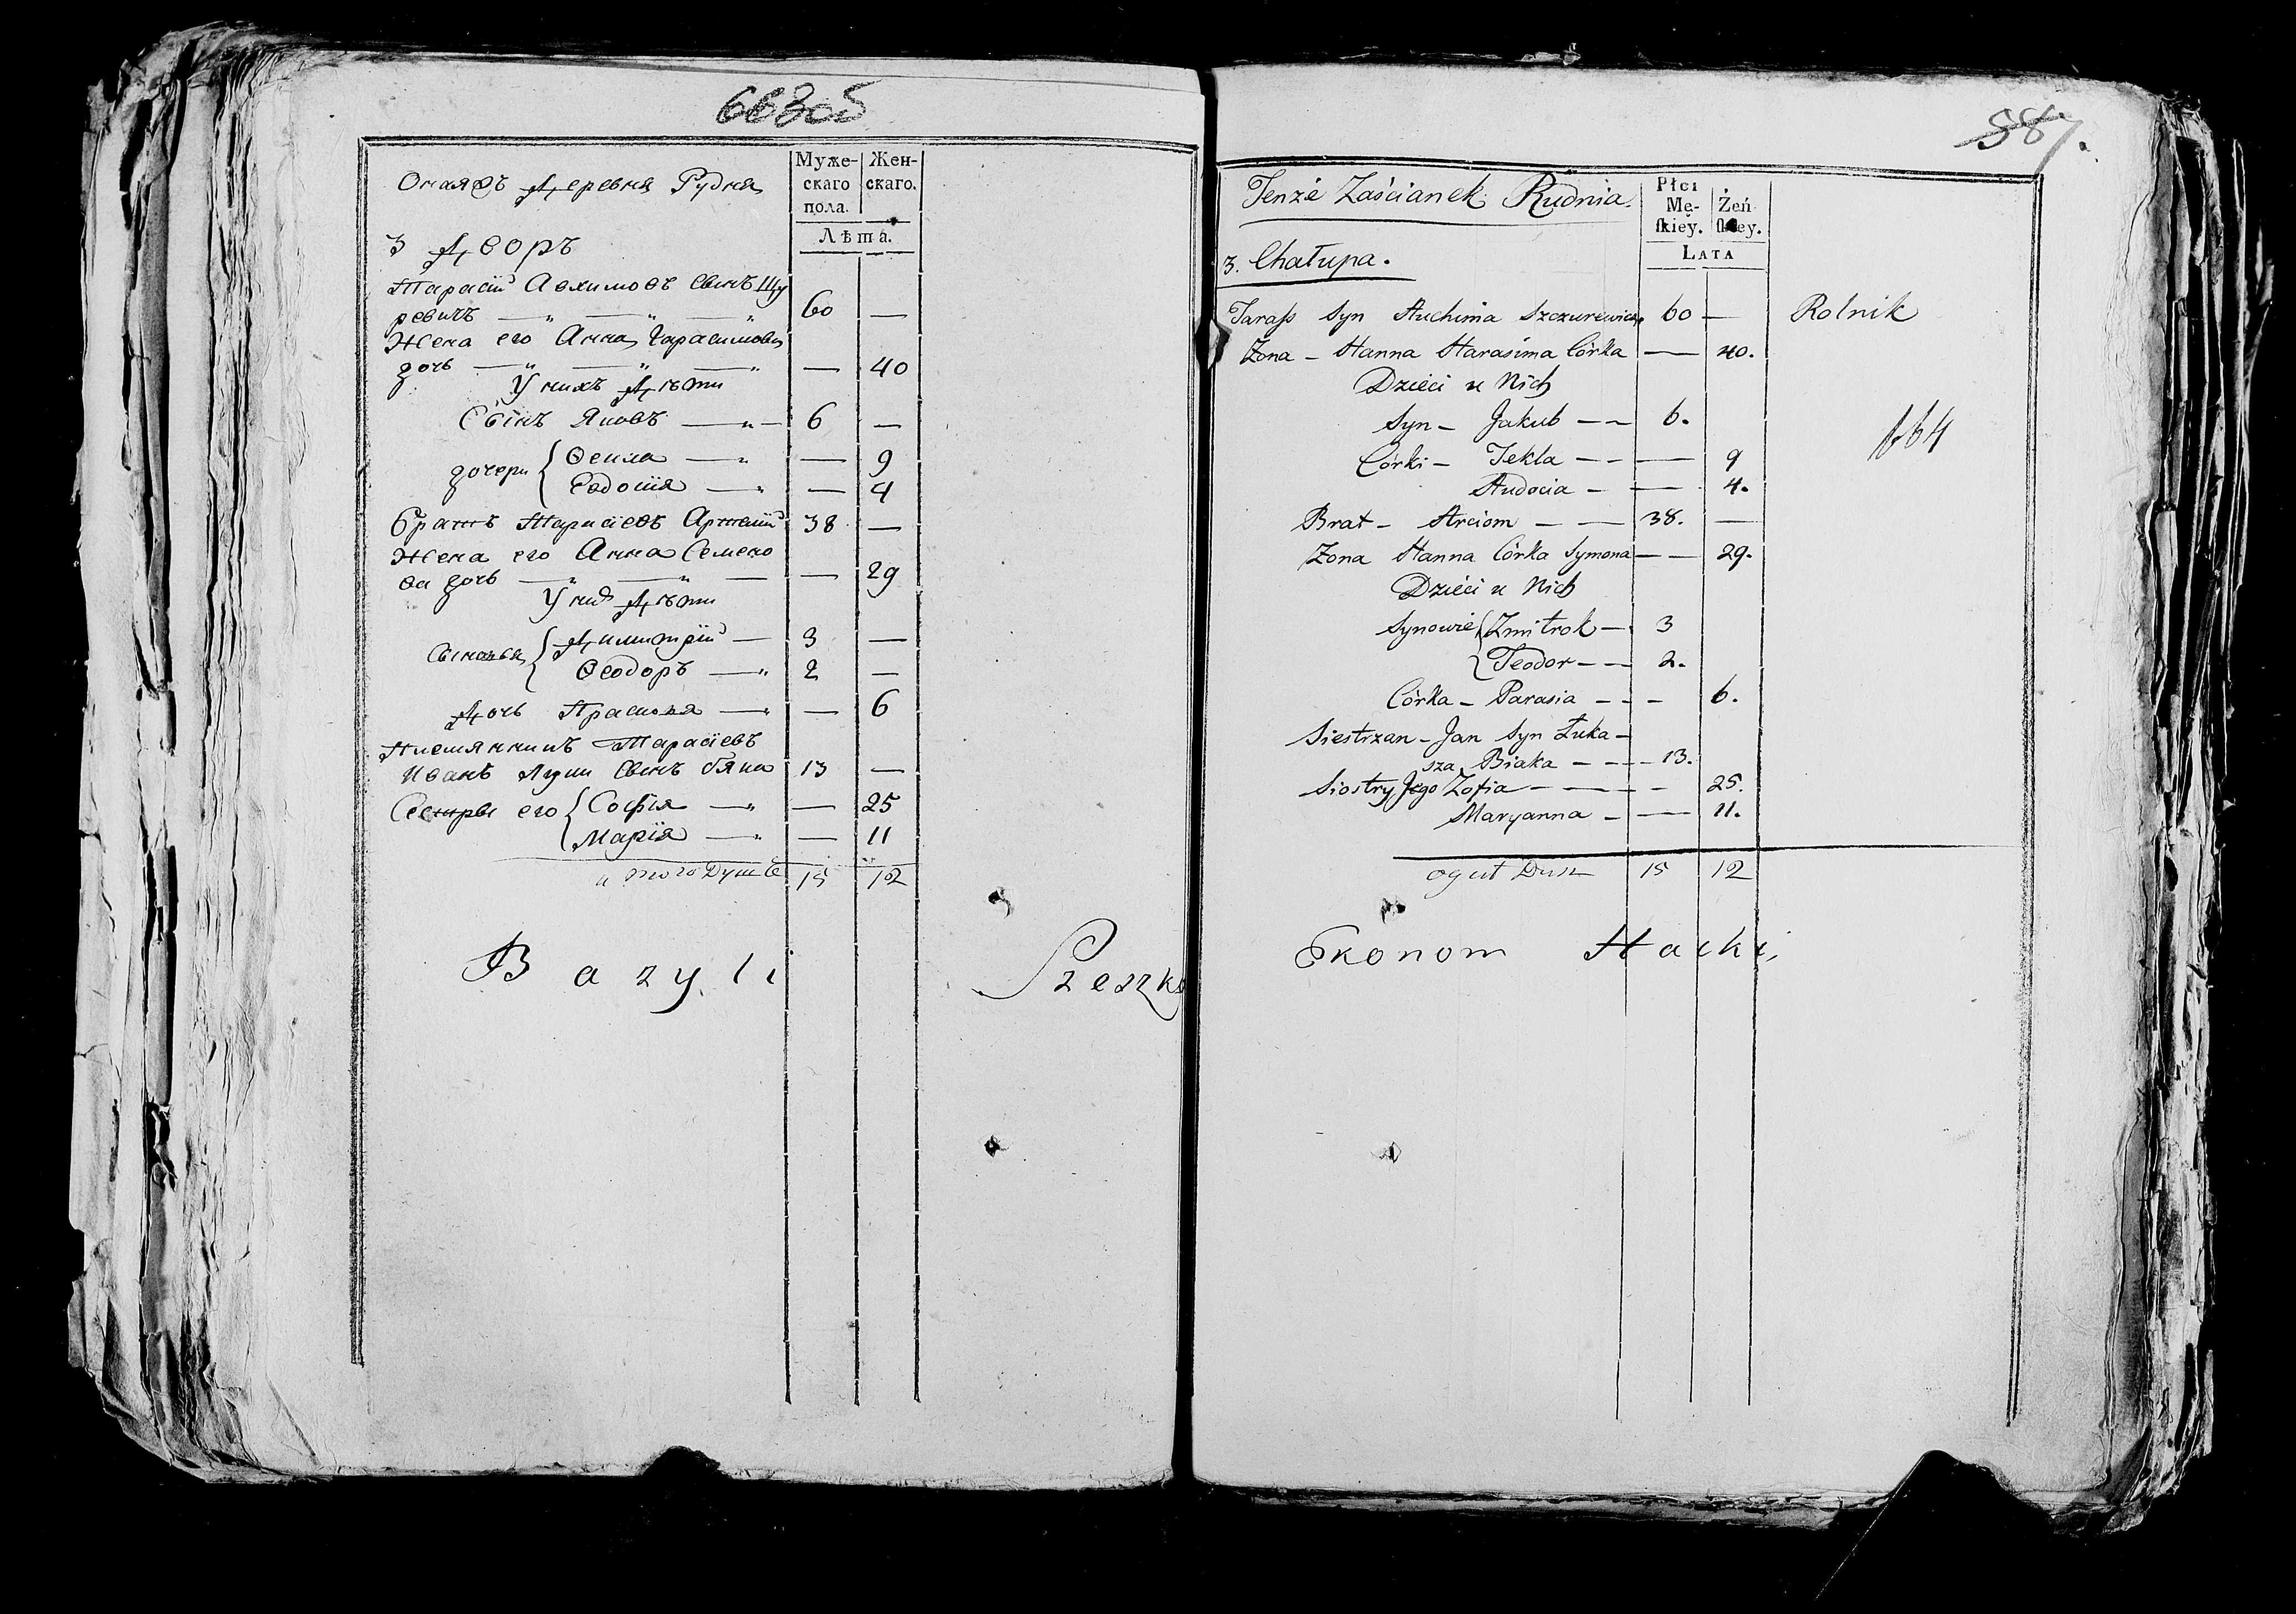 663об
Муже- Жен-
скаго скаго.
пола.
Лѣта.
Онаяжъ Деревня Рудня
3 Дворъ
Тарасій Авхимовъ сынъ Щу
ревичъ — 60 —
Жена его Анна Гарасимова
дочь — — 40
У нихъ Дѣти
Сынъ Яковъ — 6 —
дочери Ѳекла — — 9
Евдокія — — 4
братъ Тарасіевъ Артемій 38 —
Жена его Анна Семено
ва дочь — — 29
У нихъ Дѣти
Сыновья Димитрій — 3 —
Ѳеодоръ — 2 —
Дочь Прасковья — — 6
Племянникъ Тарасіевъ
Иванъ Луки сынъ бяка 13 —
Сестры его Софія — — 25
Марія — — 11
итого Душъ 15 12
Bazyli Szeszko
587.
Płci
Mę- Żeń
skiey. skiey.
LATA
Tenże Zaścianek Rudnia.
3. Chałupa.
Tarass Syn Auchima Szczurewicz 60 — Rolnik
Żona – Hanna Harasima Córka — 40.
Dzieci u Nich
Syn – Jakub — 6.
164
Córki – Tekla — — 9
Audocia — — 4.
Brat – Arciom — 38. —
Żona Hanna Córka Symona — 29.
Dzieci u Nich
Synowie Zmitrok — 3
Teodor — 2.
Córka – Parasia — — 6.
Siestrzan – Jan Syn Łuka–
sza Biaka — 13.
Siostry Jego Zofia — — 25.
Maryanna — — 11.
oguł Dusz 15 12
Ekonom